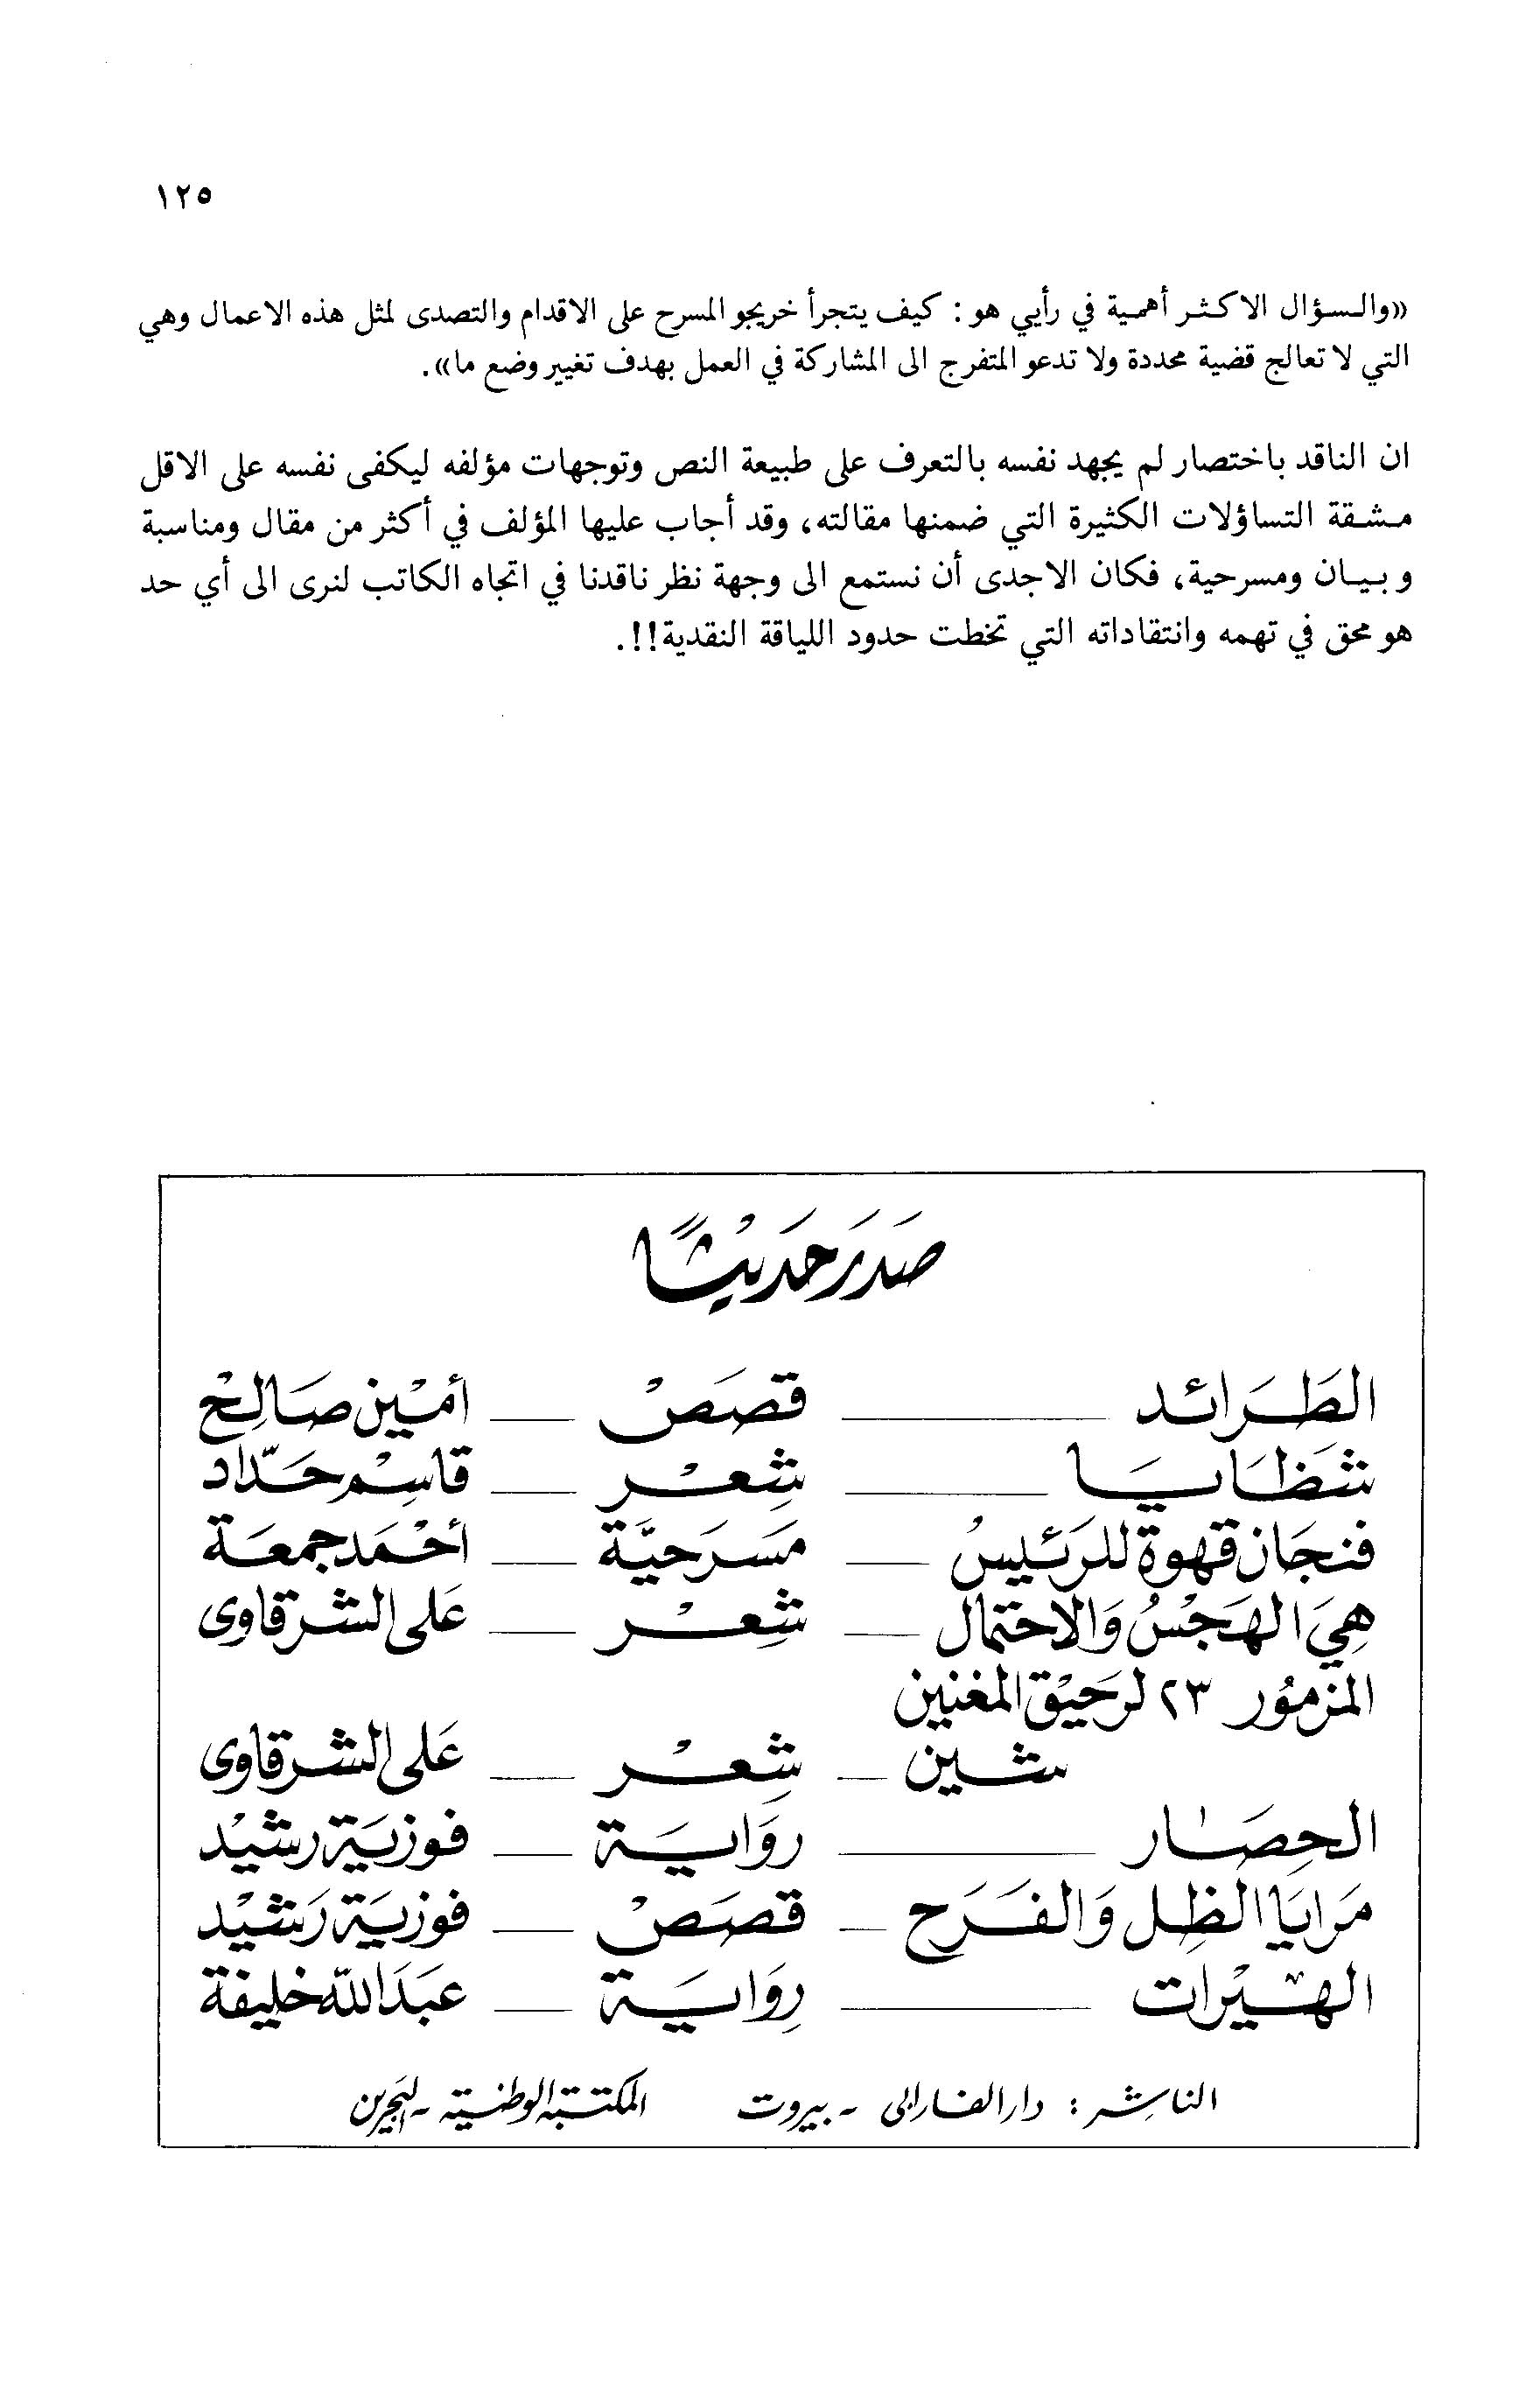 ١٢٥
«والسؤال الاكثر أهمية في رأيي هو: كيف يتجرأ خريجو المسرح على الاقدام والتصدى لمثل هذه الاعمال وهي
التي لا تعالج قضية محددة ولا تدعو المتفرج الى المشاركة في العمل بهدف تغيير وضع ما».
ان الناقد باختصار لم يجهد نفسه بالتعرف على طبيعة النص وتوجهات مؤلفه ليكفى نفسه على الاقل
مشقة التساؤلات الكثيرة التي ضمنها مقالته، وقد أجاب عليها المؤلف في أكثر من مقال ومناسبة
وبيان ومسرحية، فكان الاجدى أن نستمع الى وجهة نظر ناقدنا في اتجاه الكاتب لنرى الى أي حد
هو محق في تهمه وانتقاداته التي تخطت حدود اللياقة النقدية!!.
صَدَر حَديْثاً
الطَرَائد ـــ قصَصْ ـــ أمْين صَالِحْ
شَظَايَا ـــ شِعْر ـــ قاسِمْ حَدّاد
فنجَان قهوة للرَئيسْ ـــ مَسرَحيَّة ـــ أحْمَد جمعَة
هِيَ الهَجْسُ وَالاحتمال ـــ شِعْر ـــ عَلى الشرقاوى
المزمُور ٢٣ لرَحيْق المغنين
شين ـــ شِعْر ـــ عَلى الشرقاوى
الحِصَار ـــ روَايَة ـــ فوزيَة رشيْد
مَرايَا الظِل وَالفَرَح ـــ قصَصْ ـــ فوزيَة رَشيْد
الهيْرات ـــ رِوَايَة ـــ عبَدَالله خليفة
الناشر: دار الفارابى - بيروت المكتبة الوطنية - البحرين